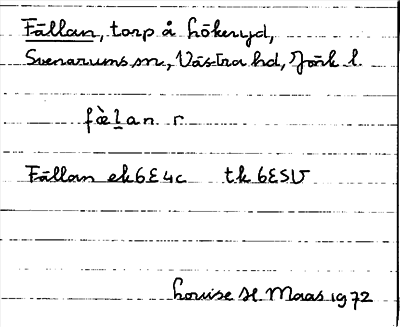 Fällan, torp å Hökeryd,
Svenarums sn, Västra hd, Jönk l.
fæ̀l̠an r
Fällan ek6E4c tk 6ESV
Louise H. Maas 1972